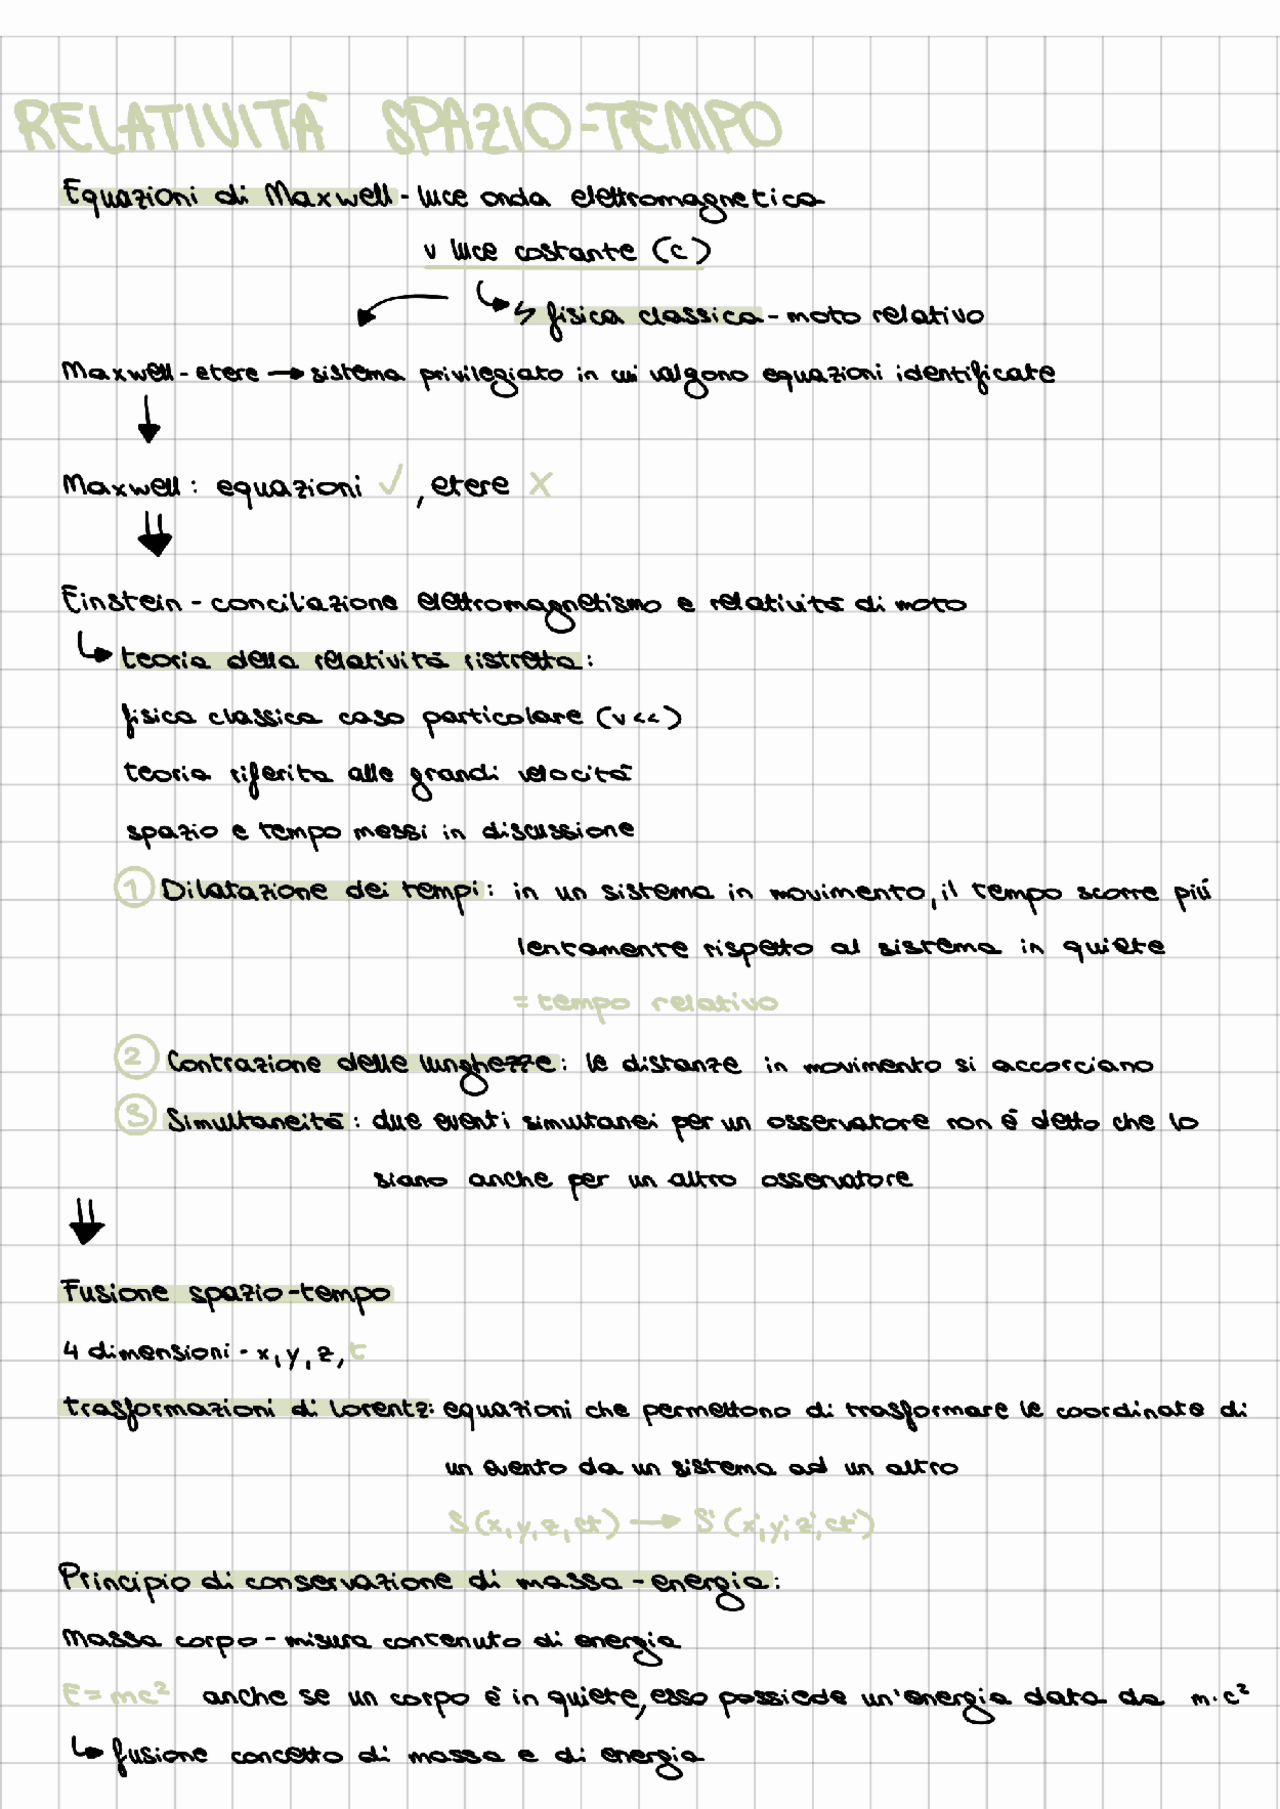 RELATIVITÀ SPAZIO-TEMPO
Equazioni di Maxwell - luce onda elettromagnetica
v luce costante (c)
↳ ↯ fisica classica - moto relativo
Maxwell - etere → sistema privilegiato in cui valgono equazioni identificate
Maxwell: equazioni ✓, etere X
Einstein - conciliazione elettromagnetismo e relatività di moto
↳ teoria della relatività ristretta:
fisica classica caso particolare (v<<)
teoria riferita alle grandi velocità
spazio e tempo messi in discussione
① Dilatazione dei tempi: in un sistema in movimento, il tempo scorre più
lentamente rispetto al sistema in quiete
= tempo relativo
② Contrazione delle lunghezze: le distanze in movimento si accorciano
③ Simultaneità: due eventi simultanei per un osservatore non è detto che lo
siano anche per un altro osservatore
⇓
Fusione spazio-tempo
4 dimensioni - x, y, z, t
trasformazioni di Lorentz: equazioni che permettono di trasformare le coordinate di
un evento da un sistema ad un altro
S (x, y, z, ct) → S' (x', y', z', ct')
Principio di conservazione di massa - energia:
Massa corpo - misura contenuto di energia
E = mc² anche se un corpo è in quiete, esso possiede un'energia data da m·c²
↳ fusione concetto di massa e di energia